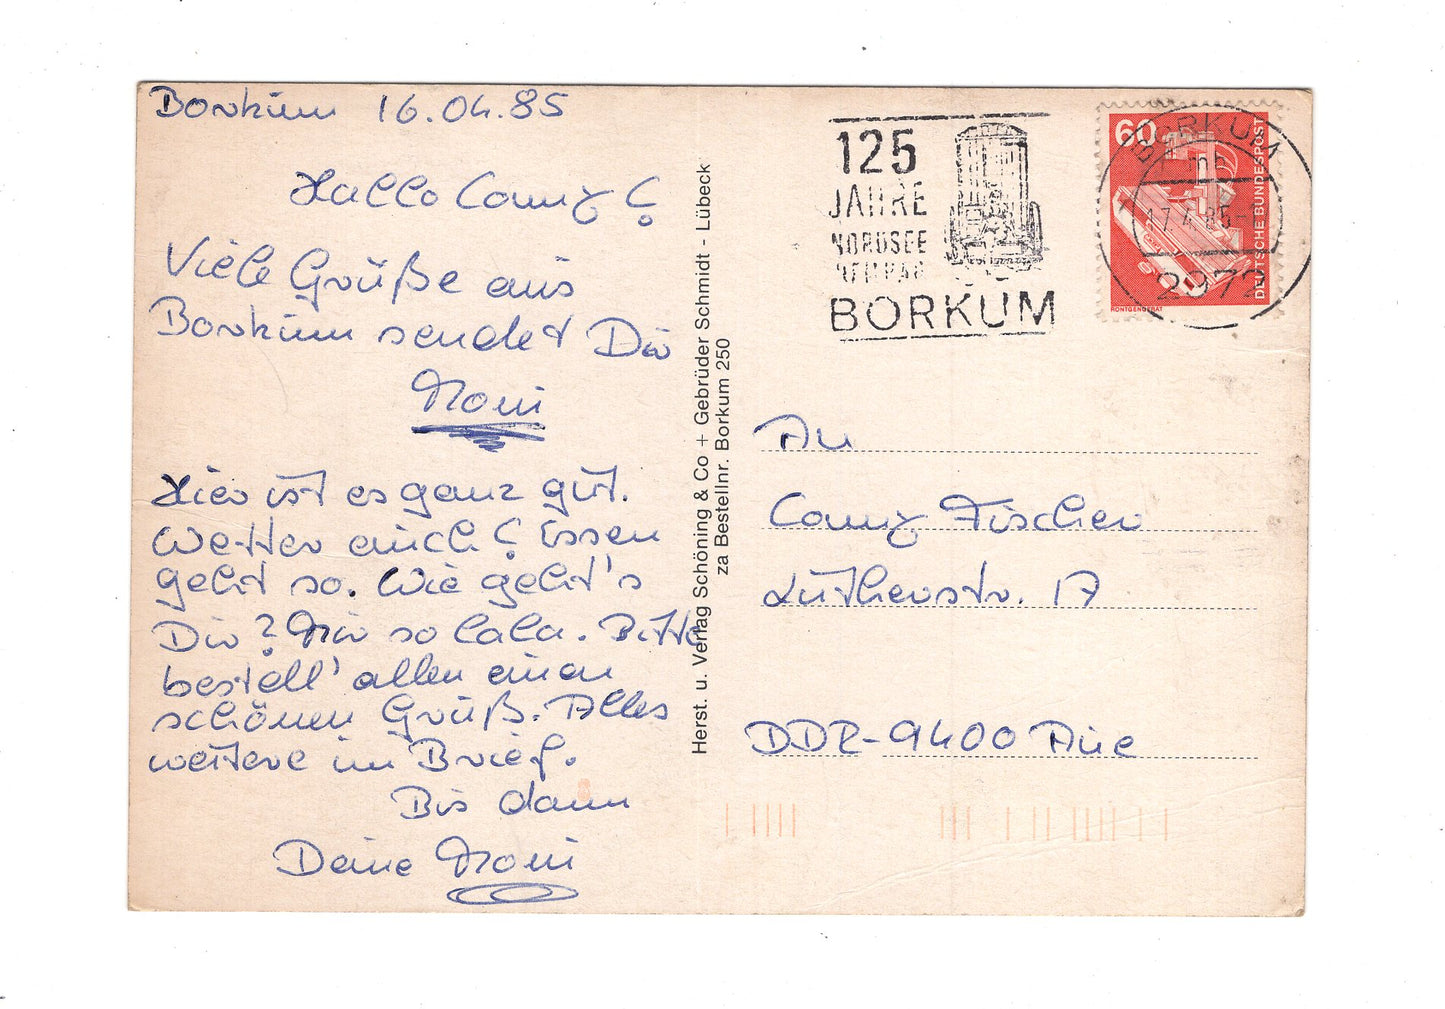 Borkum 16.04.85
Hallo Conny!
Viele Grüße aus
Borkum sendet Dir
Moni
Hier ist es ganz gut.
Wetter auch! Essen
geht so. Wie geht's
Dir? Mir so lala. Bitte
bestell' allen einen
schönen Gruß. Alles
weitere im Brief.
Bis dann
Deine Moni
Herst. u. Verlag Schöning & Co + Gebrüder Schmidt - Lübeck
za Bestellnr. Borkum 250
125
JAHRE
NORDSEE
HEILBAD
BORKUM
60
DEUTSCHE BUNDESPOST
RÖNTGENGERÄT
BORKUM
17.4.85-
2972
An
Conny Fischer
Lutherstr. 17
DDR-9400 Aue